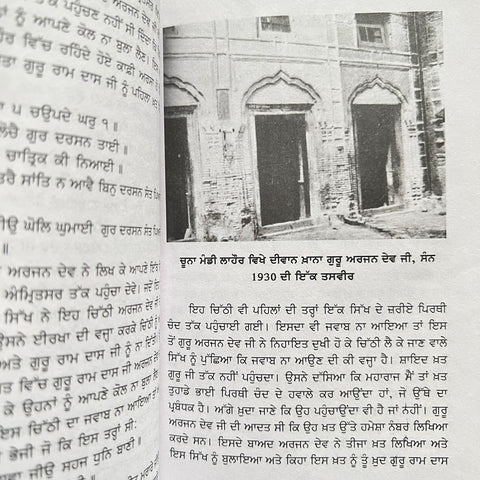 ਤੱਕ ਪਹੁੰਚਣ ਨਹੀਂ ਸੀ ਦਿੰਦਾ
ਨਾਂ ਨੂੰ ਆਪਣੇ ਕੋਲ ਨਾ ਬੁਲਾ ਲੈਣ।
ਹੌਰ ਵਿੱਚ ਰਹਿੰਦੇ ਹੋਏ ਕਾਫ਼ੀ ਅਰਸਾ
ਤਾ ਗੁਰੂ ਰਾਮ ਦਾਸ ਜੀ ਨੂੰ ਪਹਿਲਾ
੫ ਚਉਪਦੇ ਘਰੁ ੧ ॥
ਲੋਚੈ ਗੁਰ ਦਰਸਨ ਤਾਈ ॥
ਚਾਤ੍ਰਿਕ ਕੀ ਨਿਆਈ ॥
ਤਰੈ ਸਾਂਤਿ ਨ ਆਵੈ ਬਿਨੁ ਦਰਸਨ ਸੰਤ
ਜੀਉ ਘੋਲਿ ਘੁਮਾਈ ਗੁਰ ਦਰਸਨ ਸੰਤ
ਅਰਜਨ ਦੇਵ ਨੇ ਲਿਖ ਕੇ ਆਪਣੇ ਇੱਕ
ਅੰਮ੍ਰਿਤਸਰ ਤੱਕ ਪਹੁੰਚਾ ਦੇਵੇ। ਜਦੋਂ
ਸਿੱਖ ਨੇ ਇਹ ਚਿੱਠੀ ਅਰਜਨ ਦੇਵ
ਉਸਨੇ ਈਰਖਾ ਦੀ ਵਜ੍ਹਾ ਕਰਕੇ ਚਿੱਠੀ
ਅਤੇ ਗੁਰੂ ਰਾਮ ਦਾਸ ਜੀ ਨੂੰ ਨਾ
ਤ ਵਿੱਚ ਗੁਰੂ ਰਾਮ ਦਾਸ ਅਰਜਨ
ਕੇ ਉਹਨਾਂ ਨੂੰ ਆਪਣੇ ਕੋਲ ਨਾ ਬੁਲਾ
ਇਸ ਚਿੱਠੀ ਦਾ ਜਵਾਬ ਨਾ ਆਇਆ ਤਾਂ
ਭੇਜੀ ਜੋ ਕਿ ਇਸ ਤਰ੍ਹਾਂ ਸੀ:
ਵਾ ਜੀਉ ਸਹਜ ਧੁਨਿ ਬਾਣੀ ॥
ਚੂਨਾ ਮੰਡੀ ਲਾਹੌਰ ਵਿਖੇ ਦੀਵਾਨ ਖ਼ਾਨਾ ਗੁਰੂ ਅਰਜਨ ਦੇਵ ਜੀ, ਸੰਨ
1930 ਦੀ ਇੱਕ ਤਸਵੀਰ
ਇਹ ਚਿੱਠੀ ਵੀ ਪਹਿਲਾਂ ਦੀ ਤਰ੍ਹਾਂ ਇੱਕ ਸਿੱਖ ਦੇ ਜ਼ਰੀਏ ਪਿਰਥੀ
ਚੰਦ ਤੱਕ ਪਹੁੰਚਾਈ ਗਈ। ਇਸਦਾ ਵੀ ਜਵਾਬ ਨਾ ਆਇਆ ਤਾਂ ਇਸ
ਤੋਂ ਗੁਰੂ ਅਰਜਨ ਦੇਵ ਜੀ ਨੇ ਨਿਹਾਇਤ ਦੁਖੀ ਹੋ ਕੇ ਚਿੱਠੀ ਲੈ ਕੇ ਜਾਣ ਵਾਲੇ
ਸਿੱਖ ਨੂੰ ਪੁੱਛਿਆ ਕਿ ਜਵਾਬ ਨਾ ਆਉਣ ਦੀ ਕੀ ਵਜ੍ਹਾ ਹੈ। ਸ਼ਾਇਦ ਖ਼ਤ
ਗੁਰੂ ਜੀ ਤੱਕ ਨਹੀਂ ਪਹੁੰਚਦਾ। ਉਸਨੇ ਦੱਸਿਆ ਕਿ ਮਹਾਰਾਜ ਮੈਂ ਤਾਂ ਖ਼ਤ
ਤੁਹਾਡੇ ਭਾਈ ਪਿਰਥੀ ਚੰਦ ਦੇ ਹਵਾਲੇ ਕਰ ਆਉਂਦਾ ਹਾਂ, ਜੋ ਉੱਥੇ ਦਾ
ਪ੍ਰਬੰਧਕ ਹੈ। ਅੱਗੇ ਖ਼ੁਦਾ ਜਾਣੇ ਕਿ ਉਹ ਪਹੁੰਚਾਉਂਦਾ ਵੀ ਹੈ ਜਾਂ ਨਹੀਂ। ਗੁਰੂ
ਅਰਜਨ ਦੇਵ ਜੀ ਦੀ ਆਦਤ ਸੀ ਕਿ ਉਹ ਖ਼ਤ ਉੱਤੇ ਹਮੇਸ਼ਾ ਨੰਬਰ ਲਿਖਿਆ
ਕਰਦੇ ਸਨ। ਇਸਦੇ ਬਾਅਦ ਅਰਜਨ ਦੇਵ ਨੇ ਤੀਜਾ ਖ਼ਤ ਲਿਖਿਆ ਅਤੇ
ਇਸ ਸਿੱਖ ਨੂੰ ਬੁਲਾਇਆ ਅਤੇ ਕਿਹਾ ਇਸ ਖ਼ਤ ਨੂੰ ਤੂੰ ਖ਼ੁਦ ਗੁਰੂ ਰਾਮ ਦਾਸ